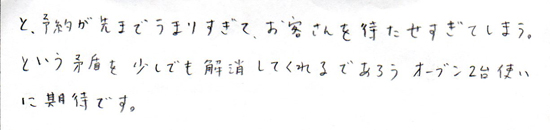 と、予約が先までうまりすぎて、お客さんを待たせすぎてしまう。
という矛盾を少しでも解消してくれるであろうオーブン2台使い
に期待です。